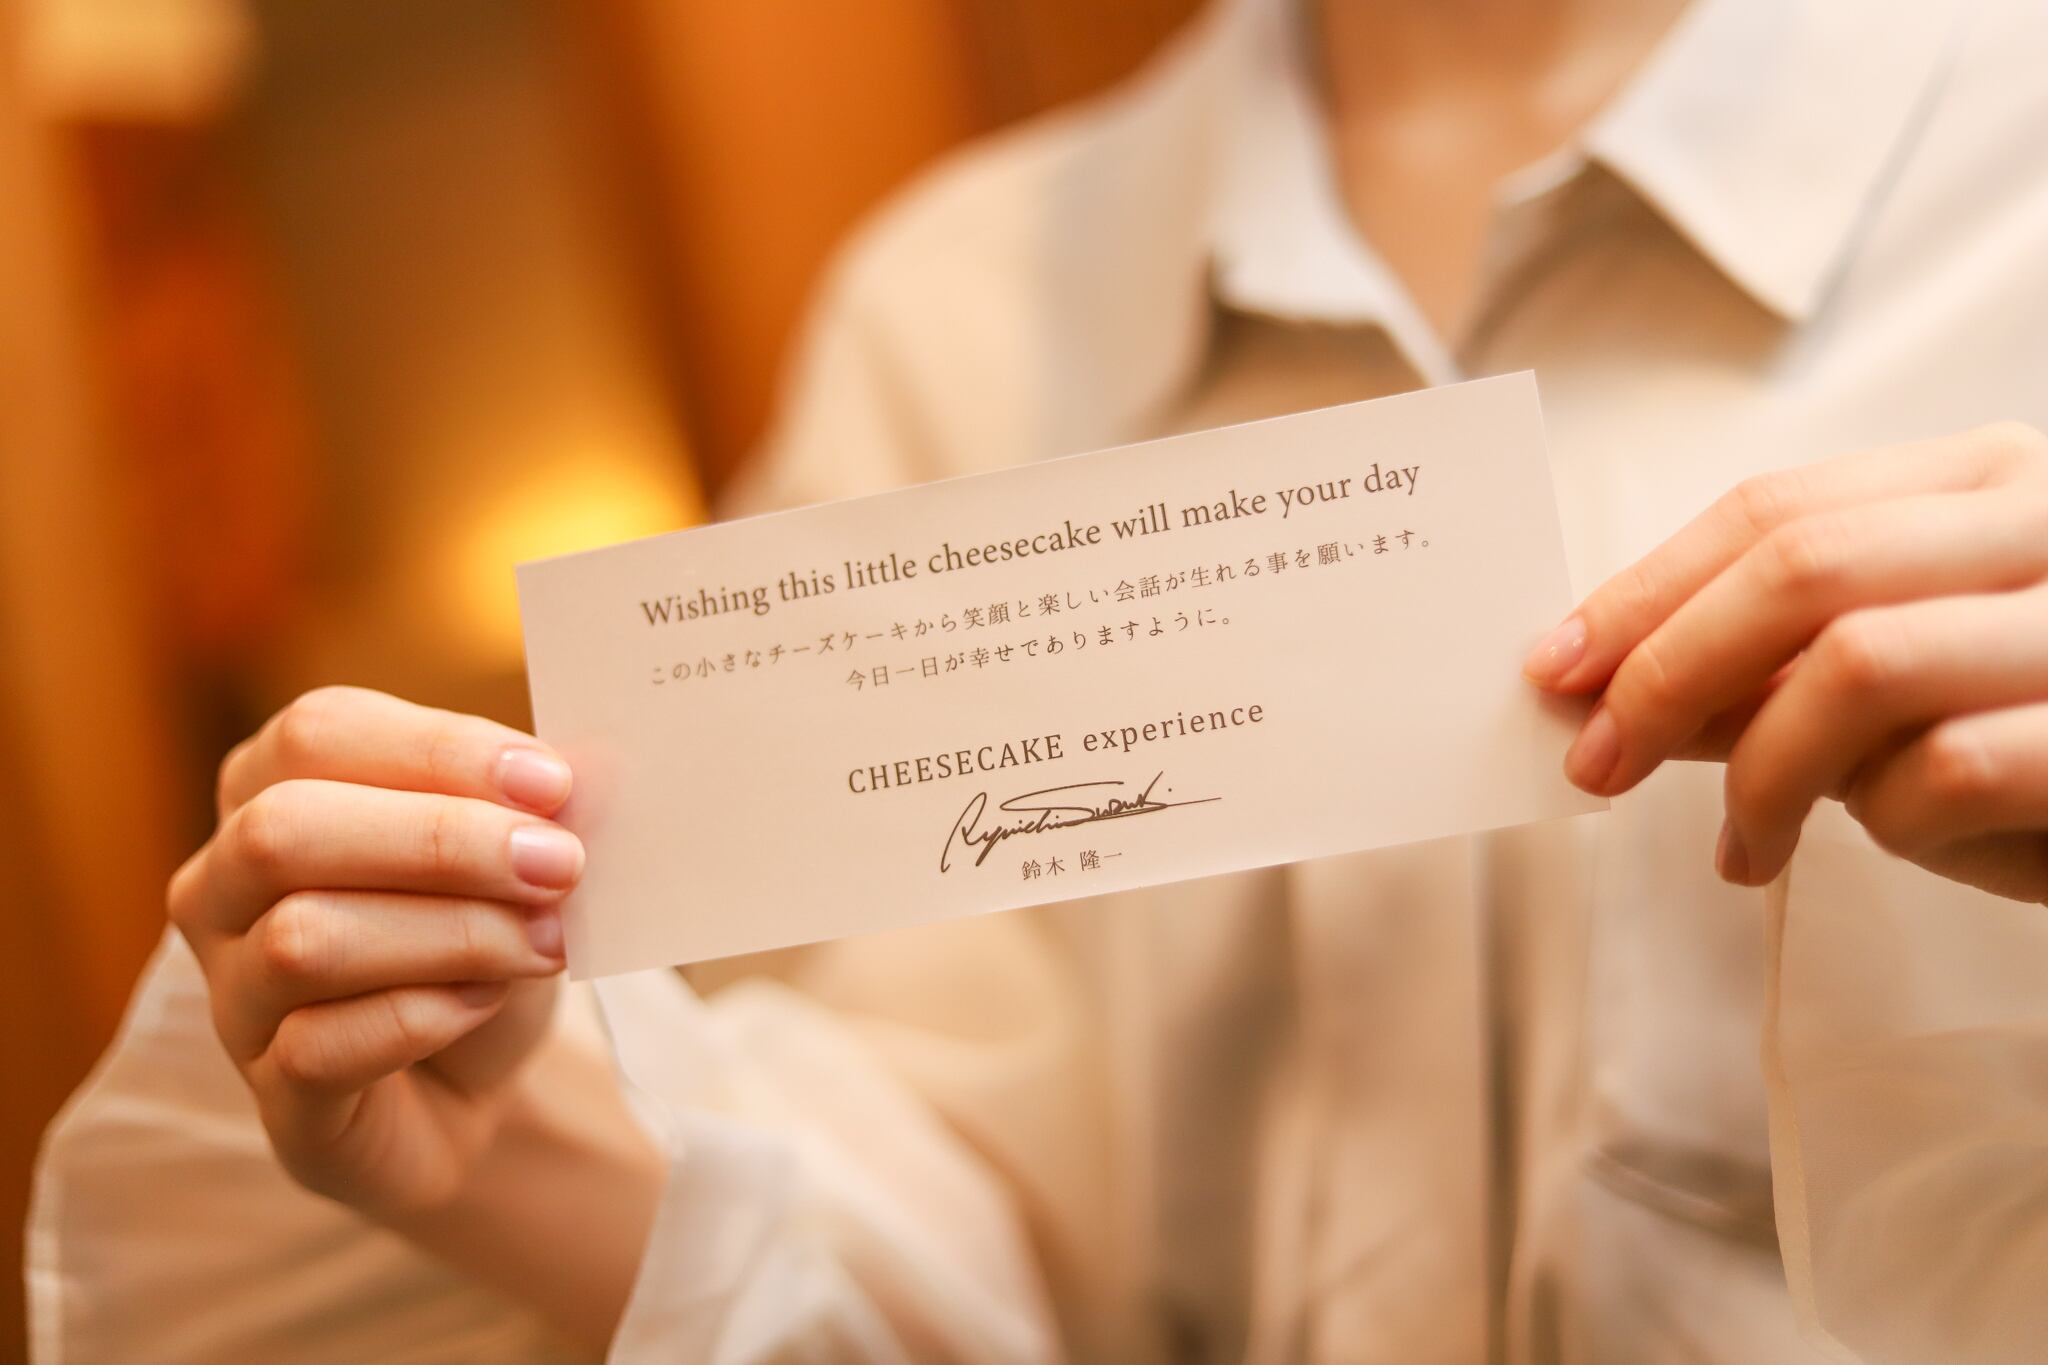 Wishing this little cheesecake will make your day
この小さなチーズケーキから笑顔と楽しい会話が生れる事を願います。
今日一日が幸せでありますように。
CHEESECAKE experience
Ryuichi Suzuki
鈴木 隆一